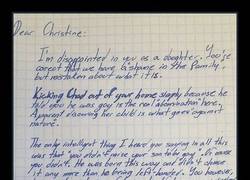 Dear Christine:
I'm disappointed in you as a daughter. You're
correct that we have a "shame in the family"
but mistaken about what it is.
Kicking Chad out of your home simply because he
told you he was gay is the real "abomination" here.
A parent disowning her child is what goes against
nature.
The only intelligent thing I hear you saying in all this
was that "you didn't raise your son to be gay". Of course
you didn't. He was born this way and didn't choose
it any more than he being left-handed. You however,